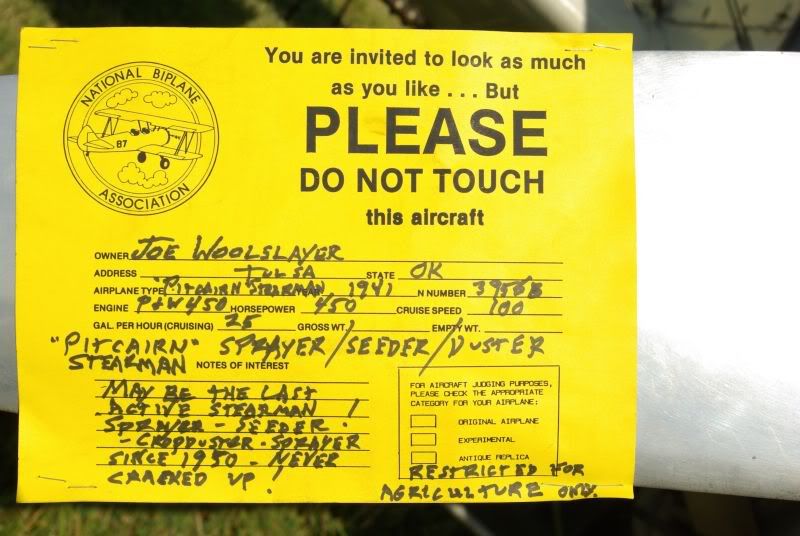 You are invited to look as much
as you like . . . But
PLEASE
DO NOT TOUCH
this aircraft
NATIONAL BIPLANE
87
ASSOCIATION
OWNER JOE WOOLSLAYER
ADDRESS TULSA STATE OK
AIRPLANE TYPE "PITCAIRN STEARMAN YEAR 1941 N NUMBER
ENGINE P+W 450 HORSEPOWER 450 CRUISE SPEED 100
GAL. PER HOUR (CRUISING) 25 GROSS WT. EMPTY WT.
"PITCAIRN" SPRAYER/SEEDER/DUSTER
STEARMAN NOTES OF INTEREST
MAY BE THE LAST
ACTIVE STEARMAN
SPRAYER - SEEDER -
- CROPDUSTER - SPRAYER
SINCE 1950 - NEVER
CRACKED UP!
FOR AIRCRAFT JUDGING PURPOSES,
PLEASE CHECK THE APPROPRIATE
CATEGORY FOR YOUR AIRPLANE:
ORIGINAL AIRPLANE
EXPERIMENTAL
ANTIQUE REPLICA
RESTRICTED FOR
AGRICULTURE ONLY.